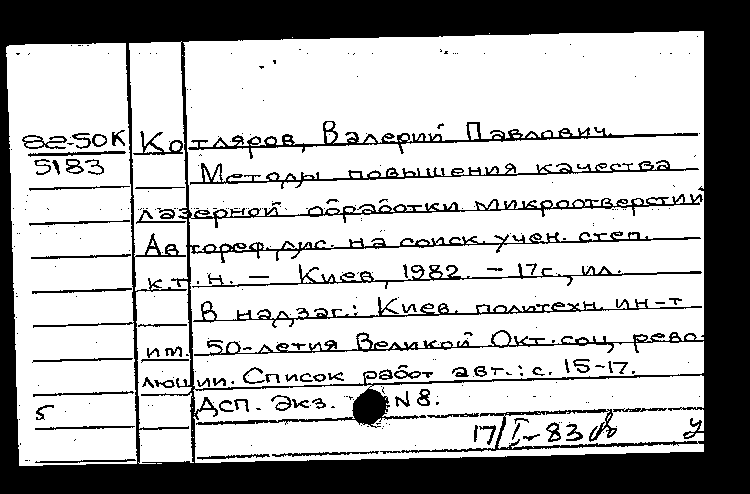 82-50К Котляров, Валерий Павлович.
5183 Методы повышения качества
лазерной обработки микроотверстий
Автореф. дис. на соиск. учен. степ.
к.т.н. – Киев, 1982. – 17с., ил.
В надзаг.: Киев. политехн. ин-т
им. 50-летия Великой Окт. соц. рево-
люции. Список работ авт.: с. 15-17.
5 Дсп. Экз. N8.
17/I-83